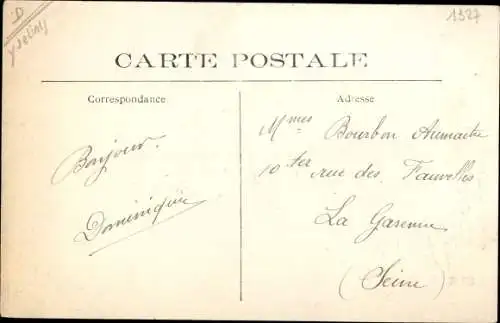 D
1327
CARTE POSTALE
Correspondance
Adresse
Bonjour.
Dominique
Mmes Bourbon Aumaitre
10 ter rue des Fauvelles
La Garenne
(Seine)